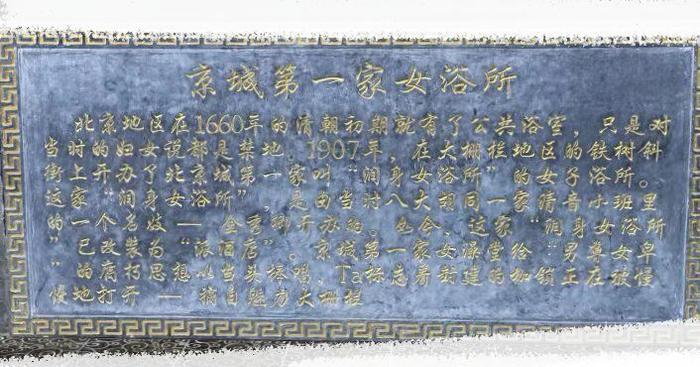 京城第一家女浴所
北京地区在1660年的清朝初期就有了公共浴室，只是对
当时的妇女说都是禁地。1907年，在大栅栏地区的铁树斜
街上开办了北京城第一家叫“润身女浴所”的女子浴所。
这家“润身女浴所”，是由当时八大胡同一家清音小班里
的一个名妓——金秀卿开办的。至今，这家“润身女浴所
”已改装为“派酒店”。京城第一家女澡堂给“男尊女卑
”的腐朽思想以当头棒喝，Ta标志着封建的枷锁正在被慢
慢地打开——摘自魅力大栅栏